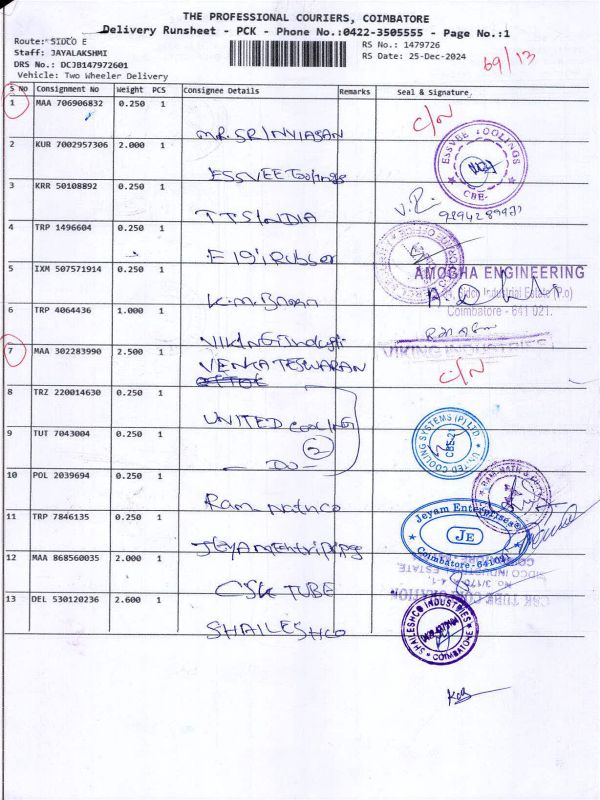 THE PROFESSIONAL COURIERS, COIMBATORE
Delivery Runsheet - PCK - Phone No.:0422-3505555 - Page No.:1
Route: SIDCO E
RS No.: 1479726
Staff: JAYALAKSHMI
RS Date: 25-Dec-2024
69/13
DRS No.: DCJB147972601
Vehicle: Two Wheeler Delivery
S No Consignment No Weight PCS Consignee Details Remarks Seal & Signature
1 MAA 706906832 0.250 1
MR. SRINVIASAN C/N
2 KUR 7002957306 2.000 1
ESSVEE Toolings
ESSVEE TOOLINGS CBE-
3 KRR 50108892 0.250 1
TTS INDIA
4 TRP 1496604 0.250 1
5 IXM 507571914 0.250 1
AMOGHA ENGINEERING
Sidco Industrial Estate (P.o)
Coimbatore - 641 021.
6 TRP 4064436 1.000 1
7 MAA 302283990 2.500 1
VENKATESWARAN C/N
8 TRZ 220014630 0.250 1
UNITED COOLING
UNITED COOLING SYSTEMS (P) LTD CBE-21
9 TUT 7043004 0.250 1
2
- DO -
10 POL 2039694 0.250 1
11 TRP 7846135 0.250 1
Jeyam Enterprises
JE
Coimbatore - 641021
12 MAA 868560035 2.000 1
CSK TUBE
13 DEL 530120236 2.600 1
SHAILESHCO
SHAILESHCO INDUSTRIES COIMBATORE